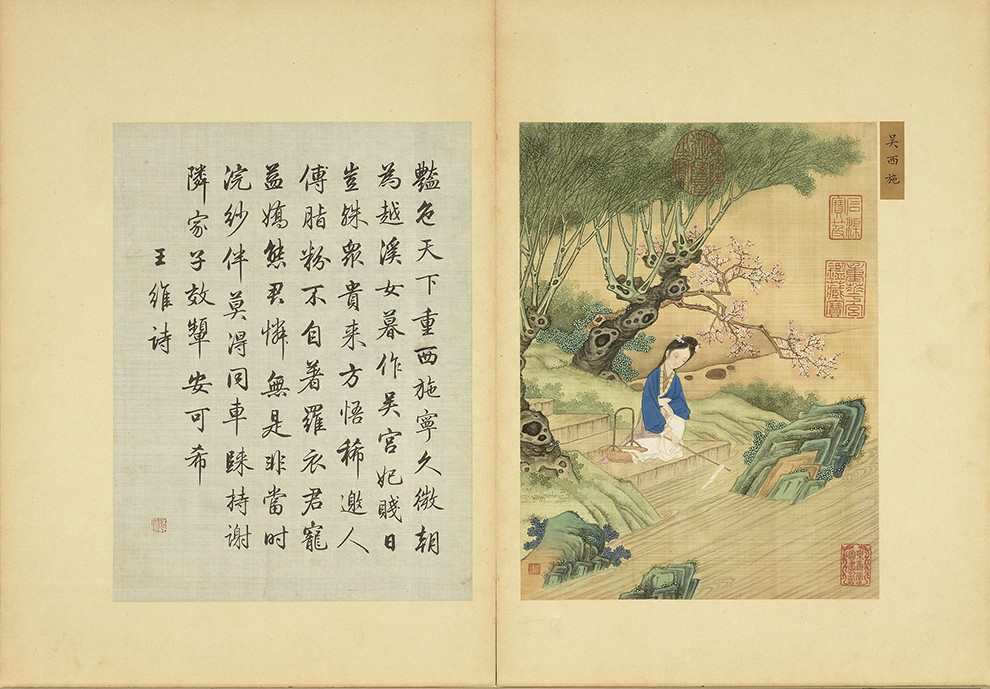 吳西施
石渠寶笈
重華宮鑑藏寶
豔色天下重西施寧久微朝
為越溪女暮作吳宮妃賤日
豈殊衆貴来方悟稀邀人
傅脂粉不自著羅衣君寵
益嬌態君憐無是非當时
浣紗伴莫得同車歸持谢
隣家子效顰安可希
王維詩